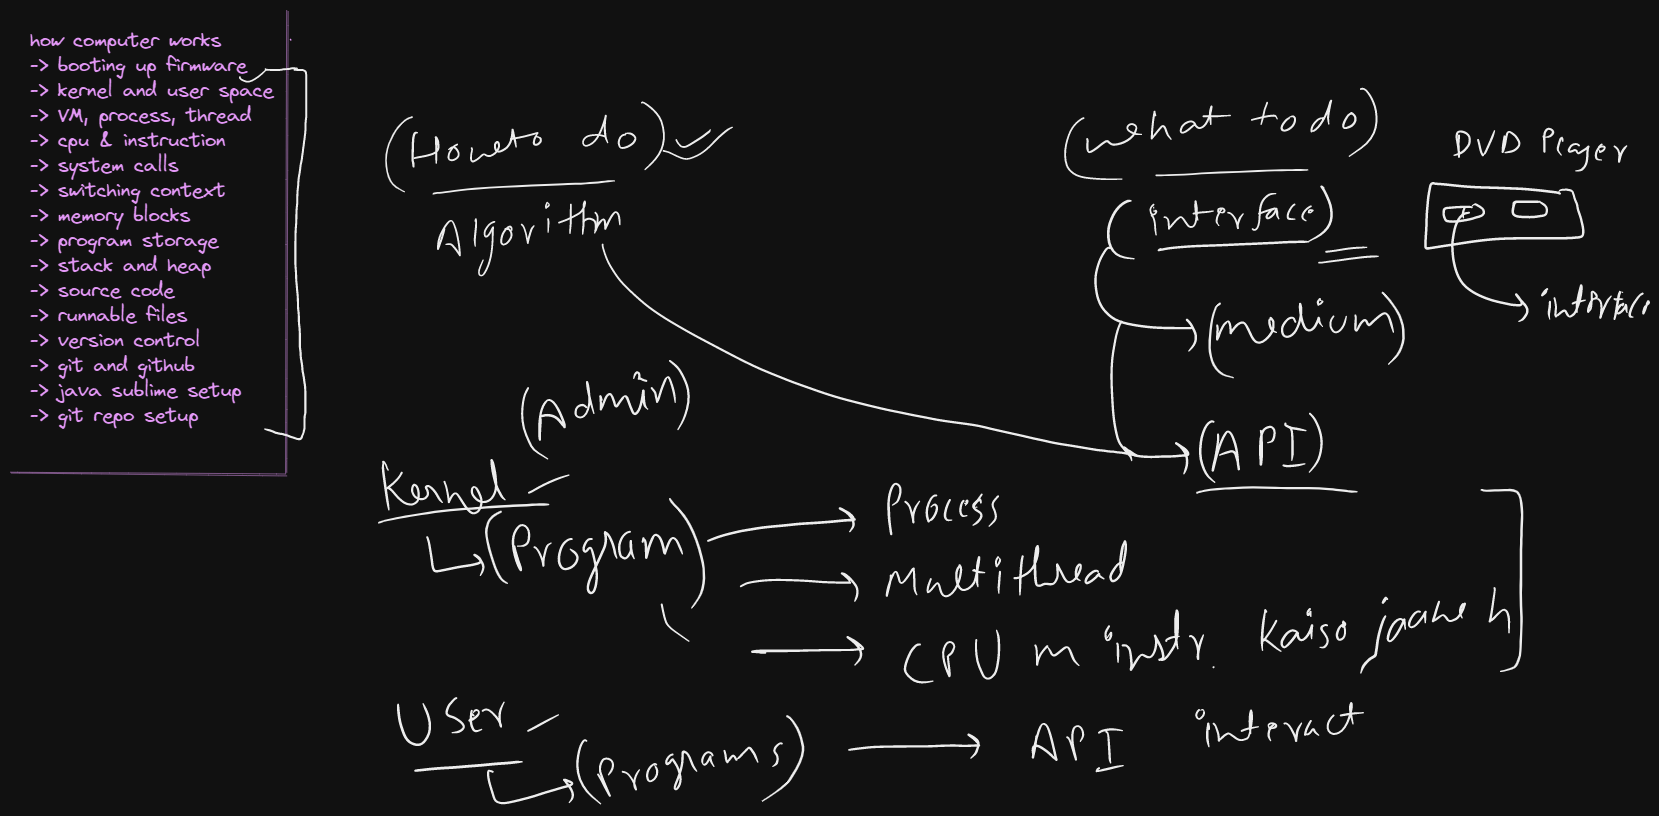 how computer works
-> booting up firmware
-> kernel and user space
-> VM, process, thread
-> cpu & instruction
-> system calls
-> switching context
-> memory blocks
-> program storage
-> stack and heap
-> source code
-> runnable files
-> version control
-> git and github
-> java sublime setup
-> git repo setup
(How to do)
Algorithm
(what to do)
(interface)
(medium)
(API)
DVD Player
interface
(Admin)
Kernel -
(Program)
Process
Multithread
CPU m instr. Kaise jaane h
User -
(Programs)
API interact